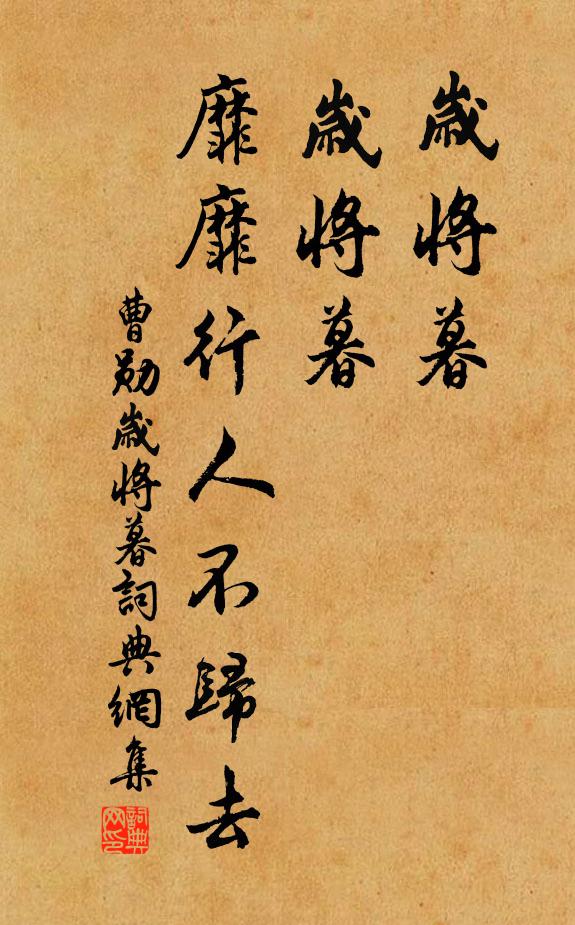 歲將暮
歲將暮
靡靡行人不歸去
曹勛歲將暮詞典網集
詞典网印